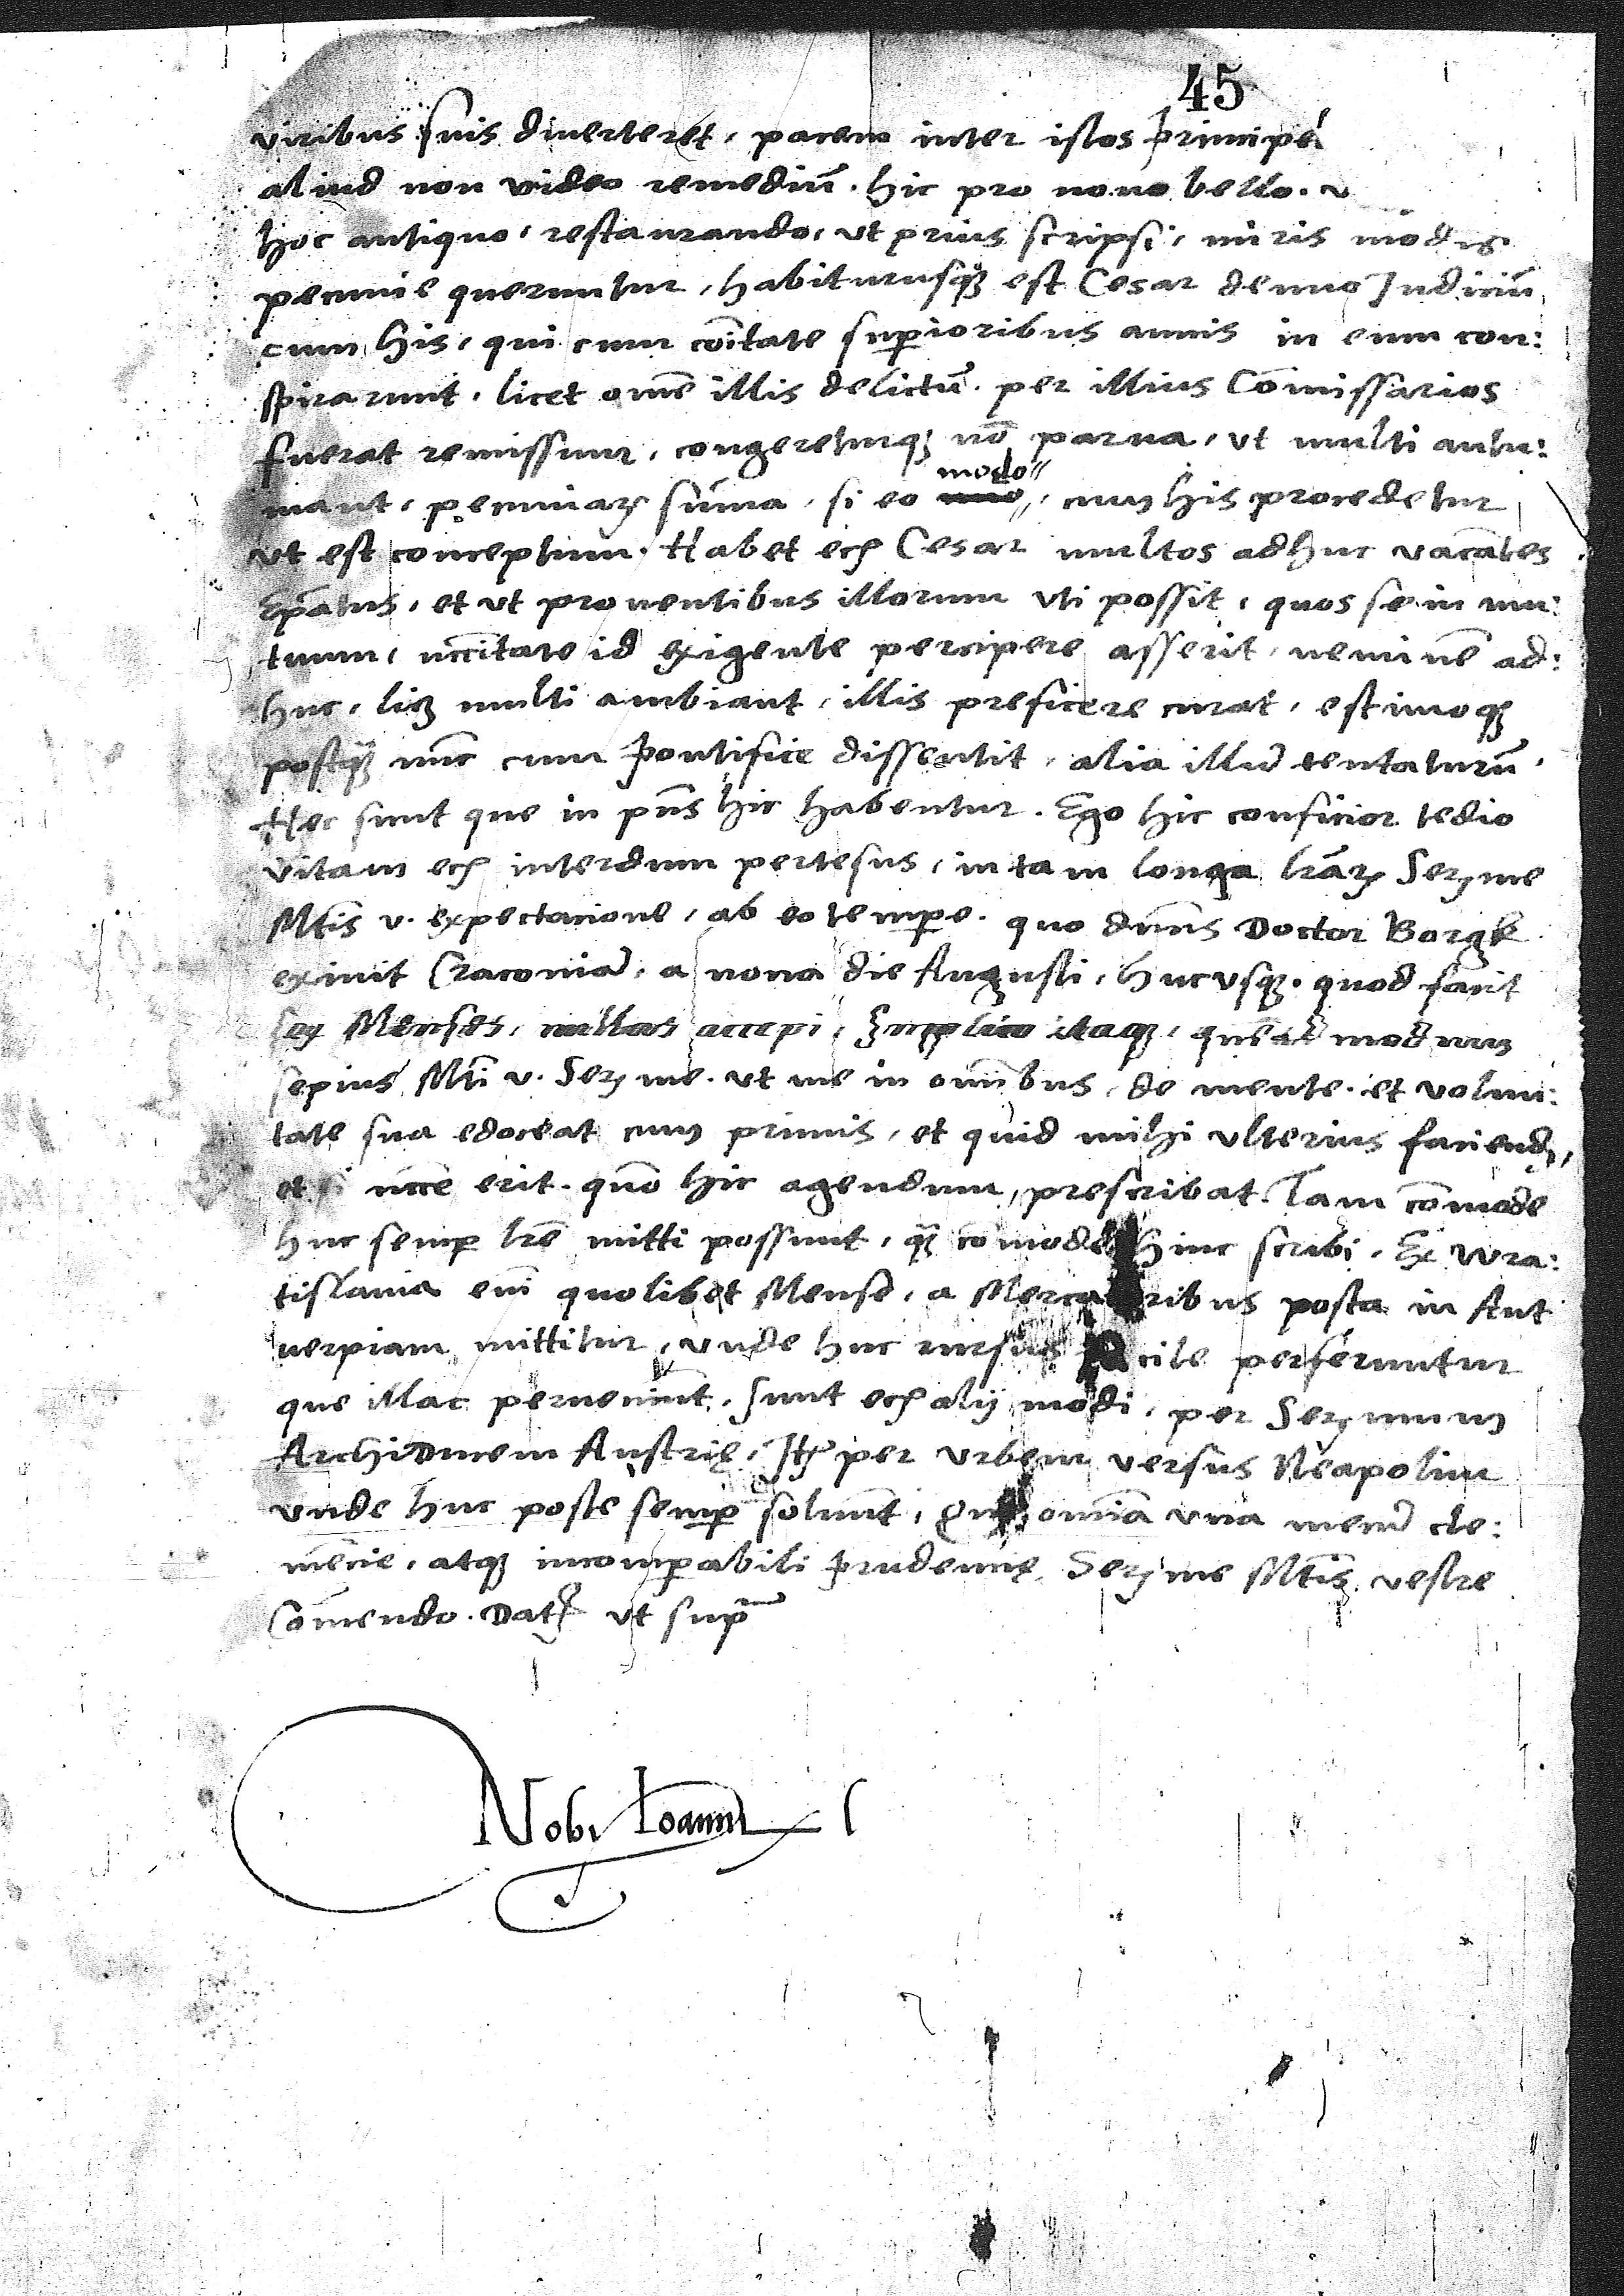 45
viribus suis diuerteret, pacem inter istos principe
aliud non video remediũ. hic pro nouo bello. v
hoc antiquo, restaurando, ut prius scripsi, miris modis
pecunie queruntur, habiturusqꝫ est Cesar denuo Iudiciũ
cum his, qui cum cõitate superioribus annis in eum con:
spirarunt, licet omne illis delictũ. per illius Cõmissarios
fuerat remissum, congereturqꝫ nõ parua, vt multi autu:
modo
mant, pecuniarꝫ sũma, si eo cum his procedetur
vt est conceptum. Habet ecꝫ Cesar multos adhuc vacãtes
Ep̃atus, et vt prouentibus illorum vti possit, quos se in mu:
tuum, nc̃citate id exigente percipere asserit, neminẽ ad:
huc, licꝫ multi ambiant, illis preficere curat, estimoqꝫ
postqꝫ nũc cum pontifice dissentit, alia illum tentaturũ.
Hec sunt que in pñs hic habentur. Ego hic conficior tedio
vitam ecꝫ interdum pertesus, in tam longa lr̃arꝫ Serꝫme
Mtĩs v. expectacione, ab eo tempore. quo dñus Doctor Borgk
exiuit Cracouiam, a nona die Augusti, hucusqꝫ. quod facit
sex Menses, nullas accepi, Supplico itaqꝫ, quẽadmodum
sepius Mtĩ v. Serꝫme. vt me in omibus, de mente. et volun:
tate sua edoceat cum primis, et quid mihi vlterius faciend,
et si nc̃ce erit. quõ hic agendum, prescribat. Tam cõmode
huc semper lr̃e mitti possunt, qꝫ cõmode hinc scribi. Ex Wra:
tislauia eni quolibet Mense, a Mercatoribus posta in Ant
uerpiam mittitur, vnde huc rursus facile perferuntur
que illac perueniunt. Sunt ecꝫ alij modi, per Serꝫmum
Archiducem Austrię, Itꝫ per vrbem versus Neapolim
vnde huc poste semper soluunt, omĩa vna mecum cle:
mẽcie, atqꝫ incomparabili prudencię Serꝫme Mtĩs vestre
Cõmendo. Datꝫ vt supra